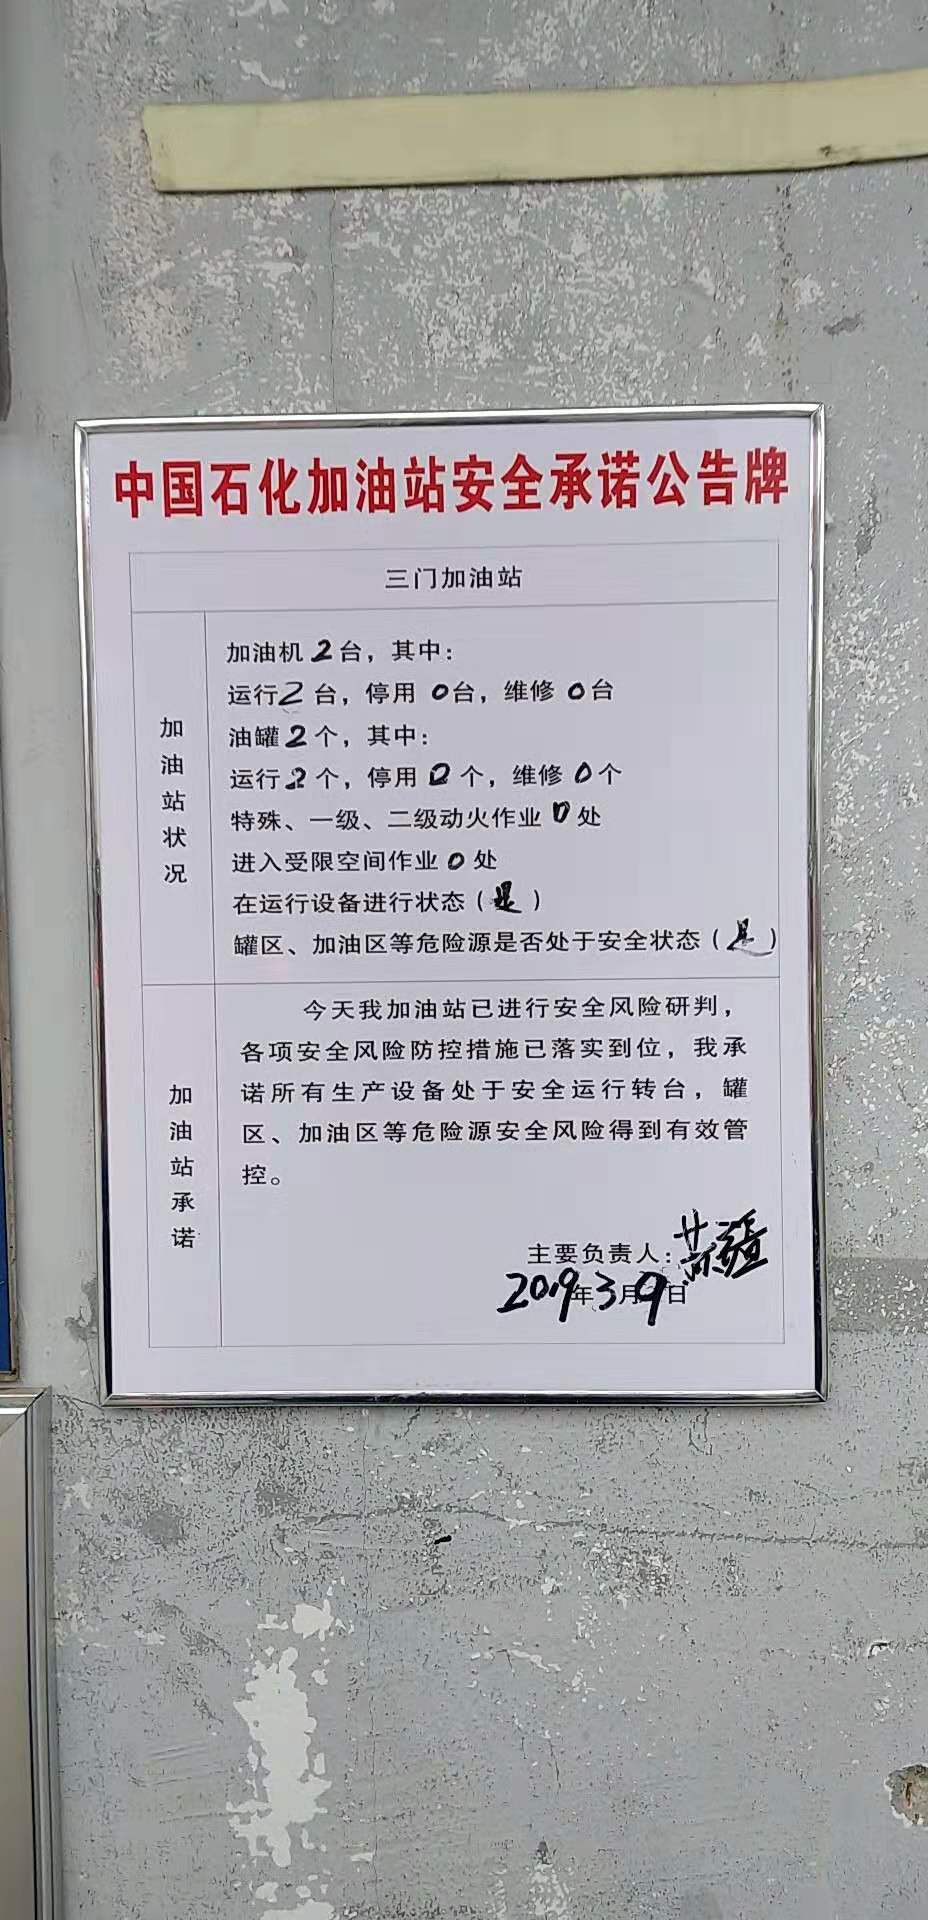 中国石化加油站安全承诺公告牌
三门加油站
加油站状况
加油机2台，其中：
运行2台，停用0台，维修0台
油罐2个，其中：
运行2个，停用0个，维修0个
特殊、一级、二级动火作业0处
进入受限空间作业0处
在运行设备进行状态（是）
罐区、加油区等危险源是否处于安全状态（是）
加油站承诺
今天我加油站已进行安全风险研判，
各项安全风险防控措施已落实到位，我承
诺所有生产设备处于安全运行转台，罐
区、加油区等危险源安全风险得到有效管
控。
主要负责人：
2019年3月9日